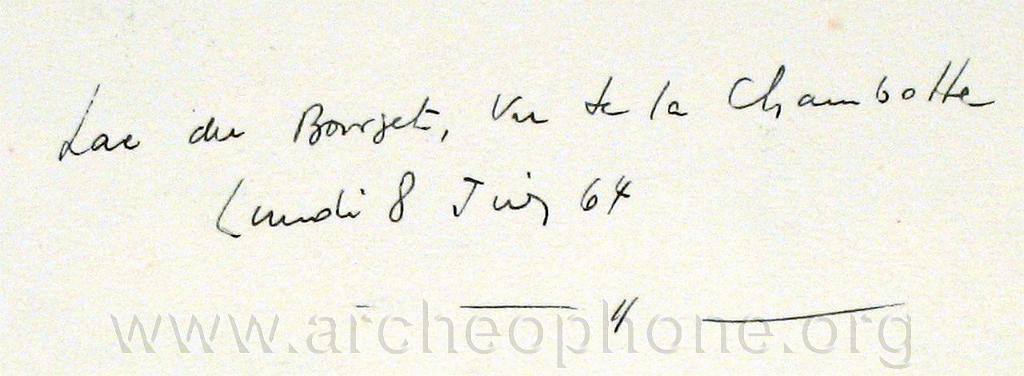 Lac du Bourget, Vu de la Chambotte
Lundi 8 Juin 64
— — " —
www.archeophone.org